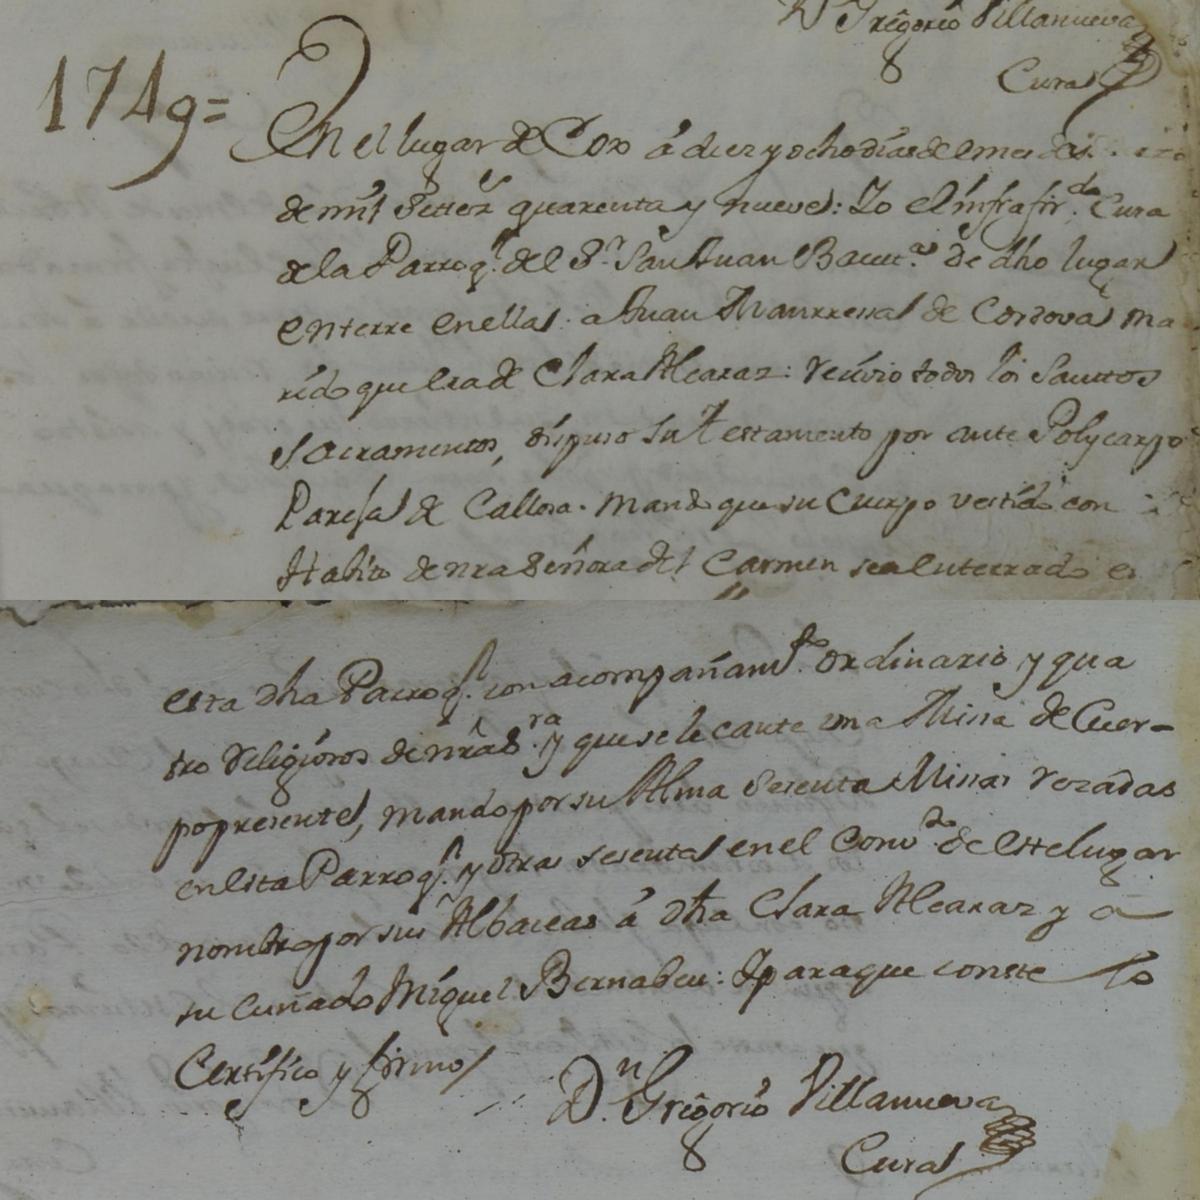 Dn Gregorio Villanueva
Cura
1749=
En el lugar de Cox á diez y ocho dias del mes de
de mil Setez quarenta y nueve: Yo el infrafirdo Cura
de la Parroql del Sr San Juan Bauta de dho lugar
enterre en ella a Juan Manrresa de Cordova ma
rido que era de Clara Alcaraz: recivio todos los Santos
Sacramentos, dispuso su Testamento por ante Polycarpo
Paresa de Callosa. Mando que su Cuerpo vestido con
Habito de nra Señora del Carmen sea enterrado en
esta dha Parroql con acompañamto ordinario y qua
tro Religiosos de nra Sra y que se le cante una Missa de Cuer-
po presente, mando por su Alma sesenta Missas rezadas
en esta Parroql y otras sesenta en el Convto de este lugar
nombro por sus Albaceas á dha Clara Alcaraz y a
su cuñado Miguel Bernabeu: Y para que conste lo
Certifico y firmo
Dn Gregorio Villanueva
Cura